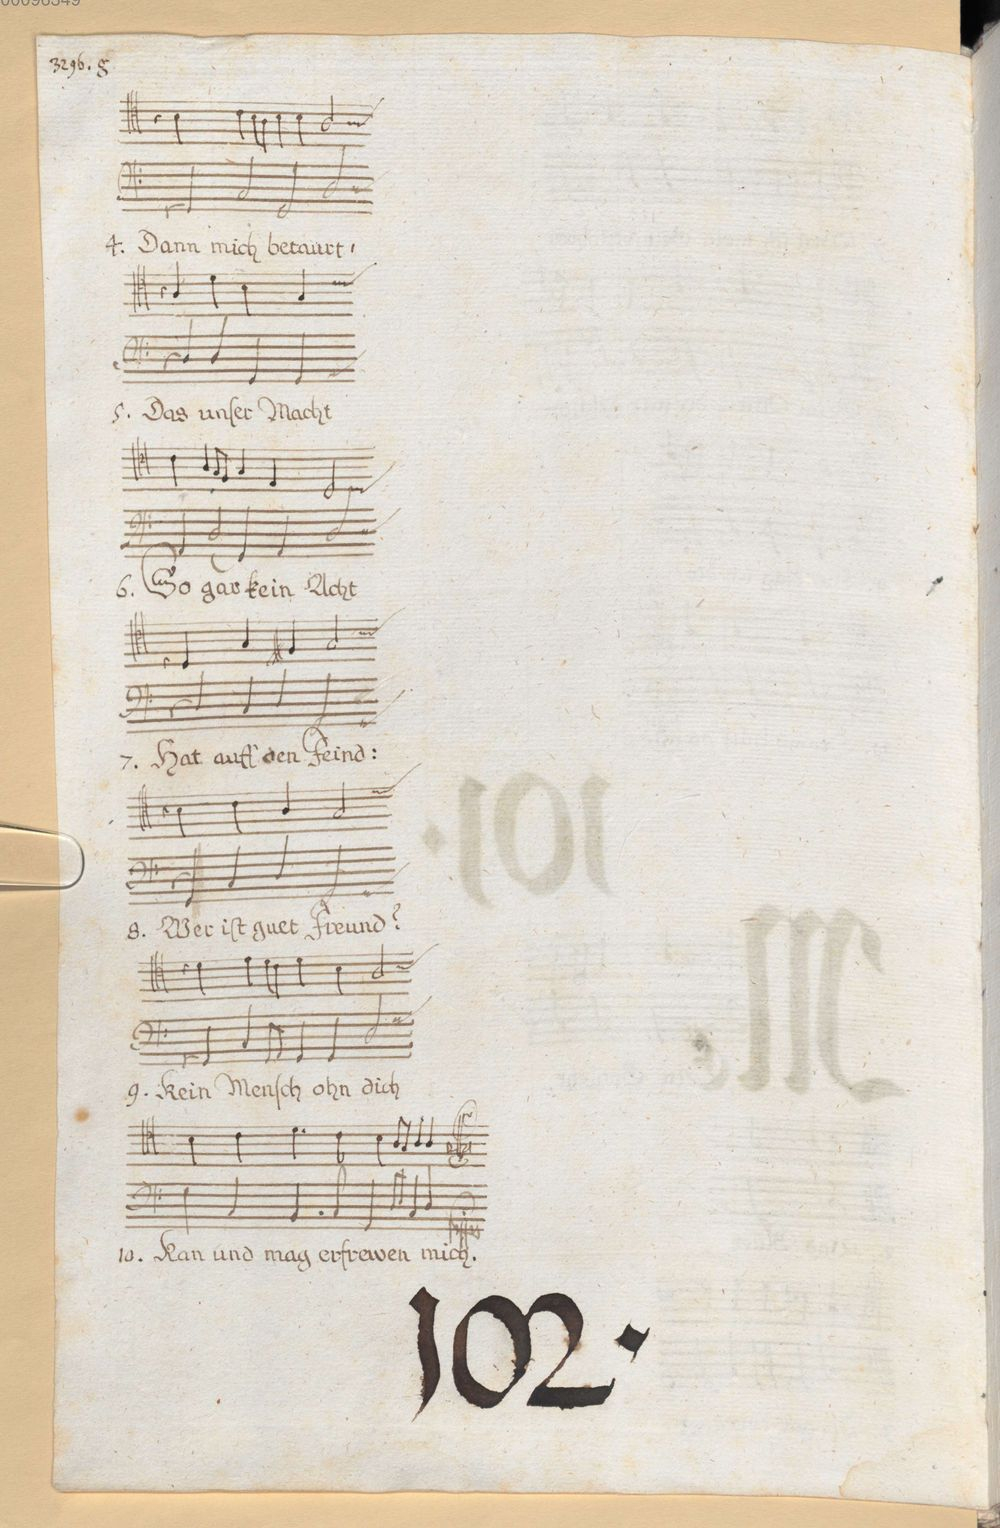 00096549
3296. g
4. Dann mich betaurt,
5. Das unser Macht
6. So gar kein Acht
7. Hat auff den Feind:
8. Wer ist guet Freund?
9. Kein Mensch ohn dich
10. Kan und mag erfrewen mich.
102.